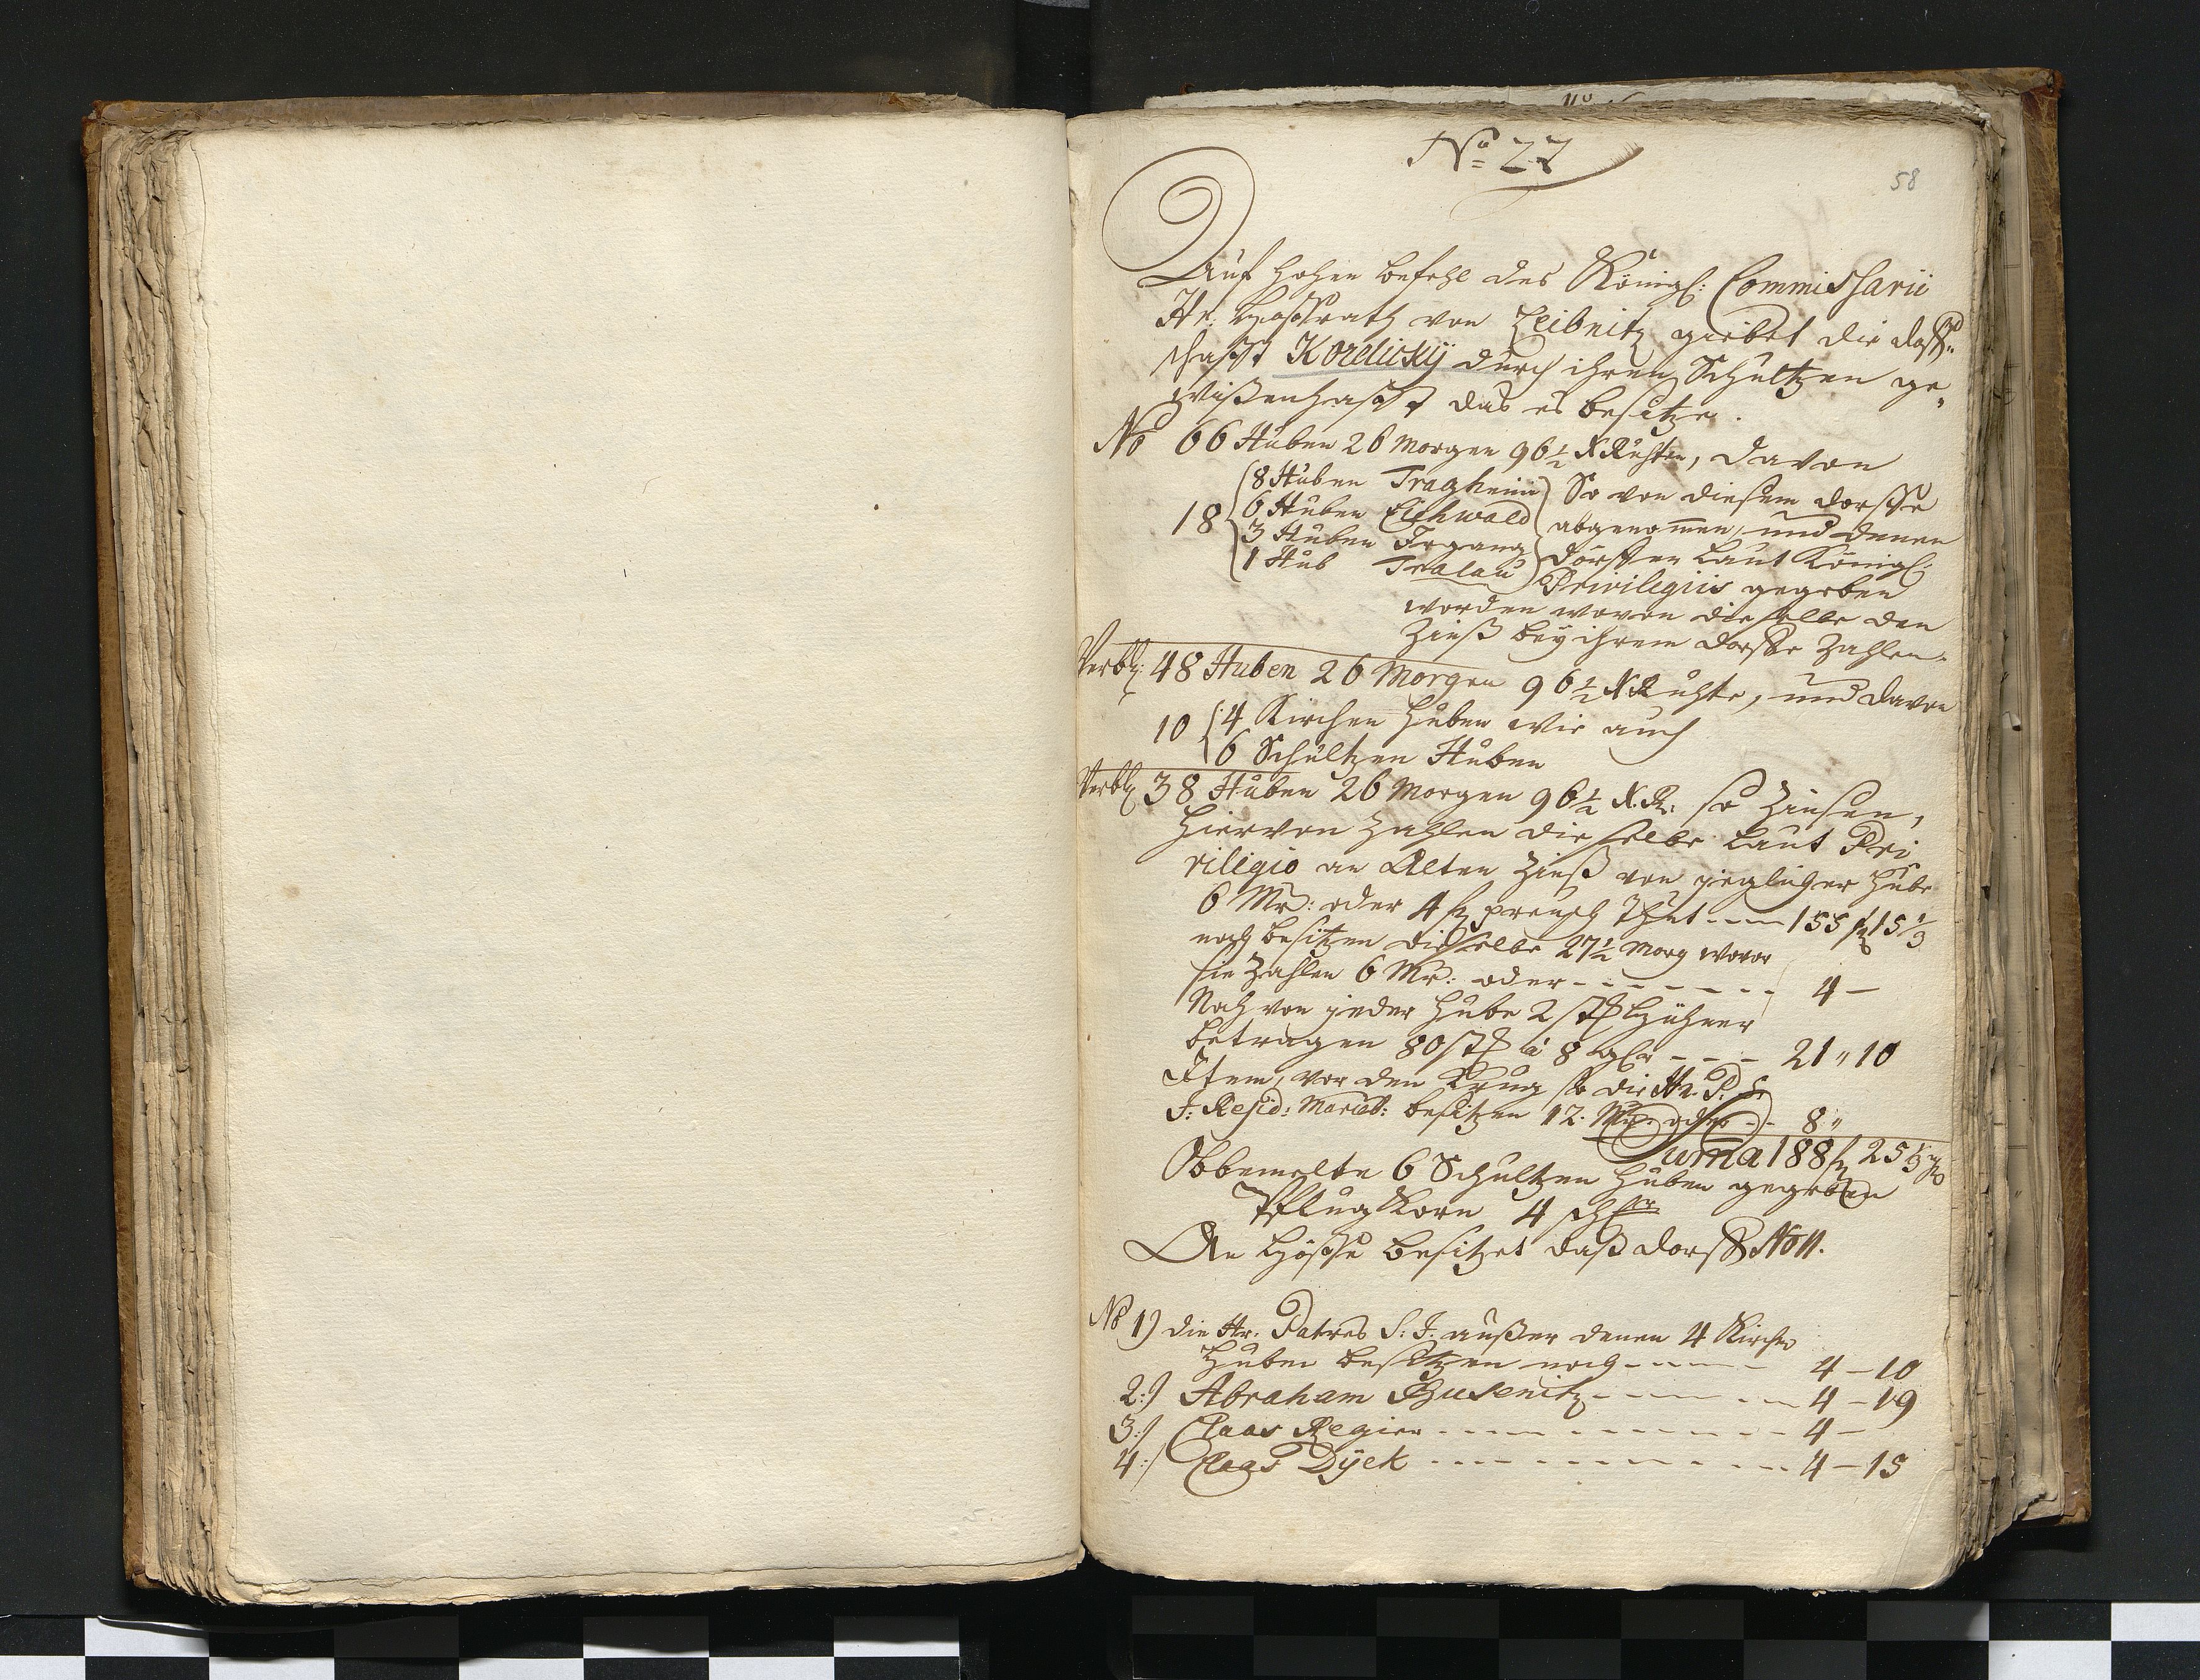 No 27
58
Auf hohen befehl des Königl: Commissarii
Hr: Hoffrath von Leibnitz giebet die dorff„
schafft Kozelicky durch ihren Schultzen ge„
wißenhafft das es besitze.
No 66 Huben 26 Morgen 96½ Ruhten, davon
18 8 Huben Tragheim So von diesem dorffe
6 Huben Eichwald abgenommen, und denen
3 Huben Irgang dörffer Laut Königl:
1 Hub Tralau Privilegiis gegeben
worden wovon dieselbe den
Zinß bey ihrem dorffe Zahlen.
Verbl: 48 Huben 26 Morgen 96½ Ruhte, und davon
10 4 Kirchen Huben wie auch
6 Schultzen Huben
Verbl 38 Huben 26 Morgen 96½ R: so Zinsen,
Hiervon Zahlen dieselbe Laut Pri
vilegio an Alten Zinß von jeglicher Hube
6 Mr: oder 4 f preusch thut --- 155 f 15⅓
noch besitzen dieselbe 27½ Morg wovor
sie Zahlen 6 Mr: oder ------- 4 —
Noch von jeder Hube 2 st Hühner
betragen 80 st à 8 --- 21 „ 10
Item, vor den Krug so die Hr. P. S.
J: Resid: Marieb: besitzen 12. Mr. oder -- 8 „
Suma 188 f 25⅓ g
Obbemelte 6 Schultzen Huben gegeben
Pflug Korn 4 schfr
An Höffe besitzet daß dorff No 11.
No 1) die Hr. Patres S: J. außer denen 4 Kirchen
Huben besitzen noch ----- 4 — 10
2:) Abraham Busenitz ---- 4 — 19
3:) Claas Regier -------- 4 —
4:) Claas Dyck --------- 4 — 15